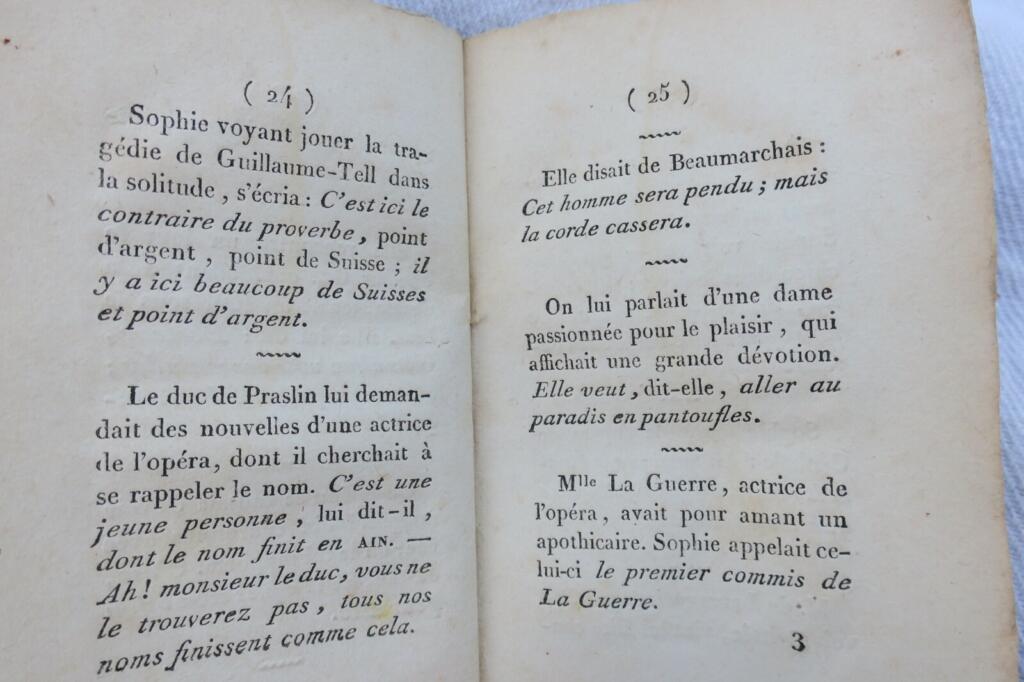 ( 24 )
Sophie voyant jouer la tra-
gédie de Guillaume-Tell dans
la solitude , s'écria : C'est ici le
contraire du proverbe , point
d'argent , point de Suisse ; il
y a ici beaucoup de Suisses
et point d'argent.
Le duc de Praslin lui deman-
dait des nouvelles d'une actrice
de l'opéra, dont il cherchait à
se rappeler le nom. C'est une
jeune personne , lui dit-il ,
dont le nom finit en AIN. —
Ah ! monsieur le duc, vous ne
le trouverez pas , tous nos
noms finissent comme cela.
( 25 )
Elle disait de Beaumarchais :
Cet homme sera pendu ; mais
la corde cassera.
On lui parlait d'une dame
passionnée pour le plaisir , qui
affichait une grande dévotion.
Elle veut , dit-elle , aller au
paradis en pantoufles.
Mlle La Guerre , actrice de
l'opéra , avait pour amant un
apothicaire. Sophie appelait ce-
lui-ci le premier commis de
La Guerre.
3